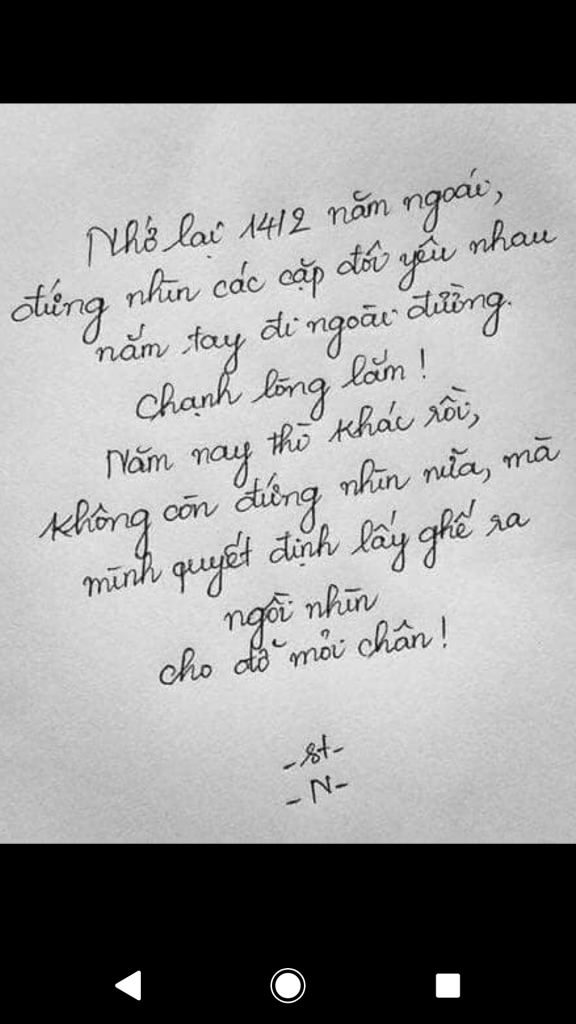 Nhớ lại 14/2 năm ngoái,
đứng nhìn các cặp đôi yêu nhau
nắm tay đi ngoài đường.
Chạnh lòng lắm!
Năm nay thì khác rồi,
không còn đứng nhìn nữa, mà
mình quyết định lấy ghế ra
ngồi nhìn
cho đỡ mỏi chân!
-st-
-N-